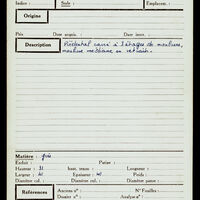 Indice : Salle : Emplacem. :
Origine
Prix Date acquis. : Date inscr. :
Description Piédestal carré à 2 étages de moulures,
moulure médiane en retrait.
Matière : grès
Enduit : Patine :
Hauteur : 31 haut. trous : Longueur :
Largeur : 40 Epaisseur : 40 Poids :
Diamètre col. : Diamètre panse :
Références Anciens n° : N° Fouilles :
Dossier n° : Analyse n° :